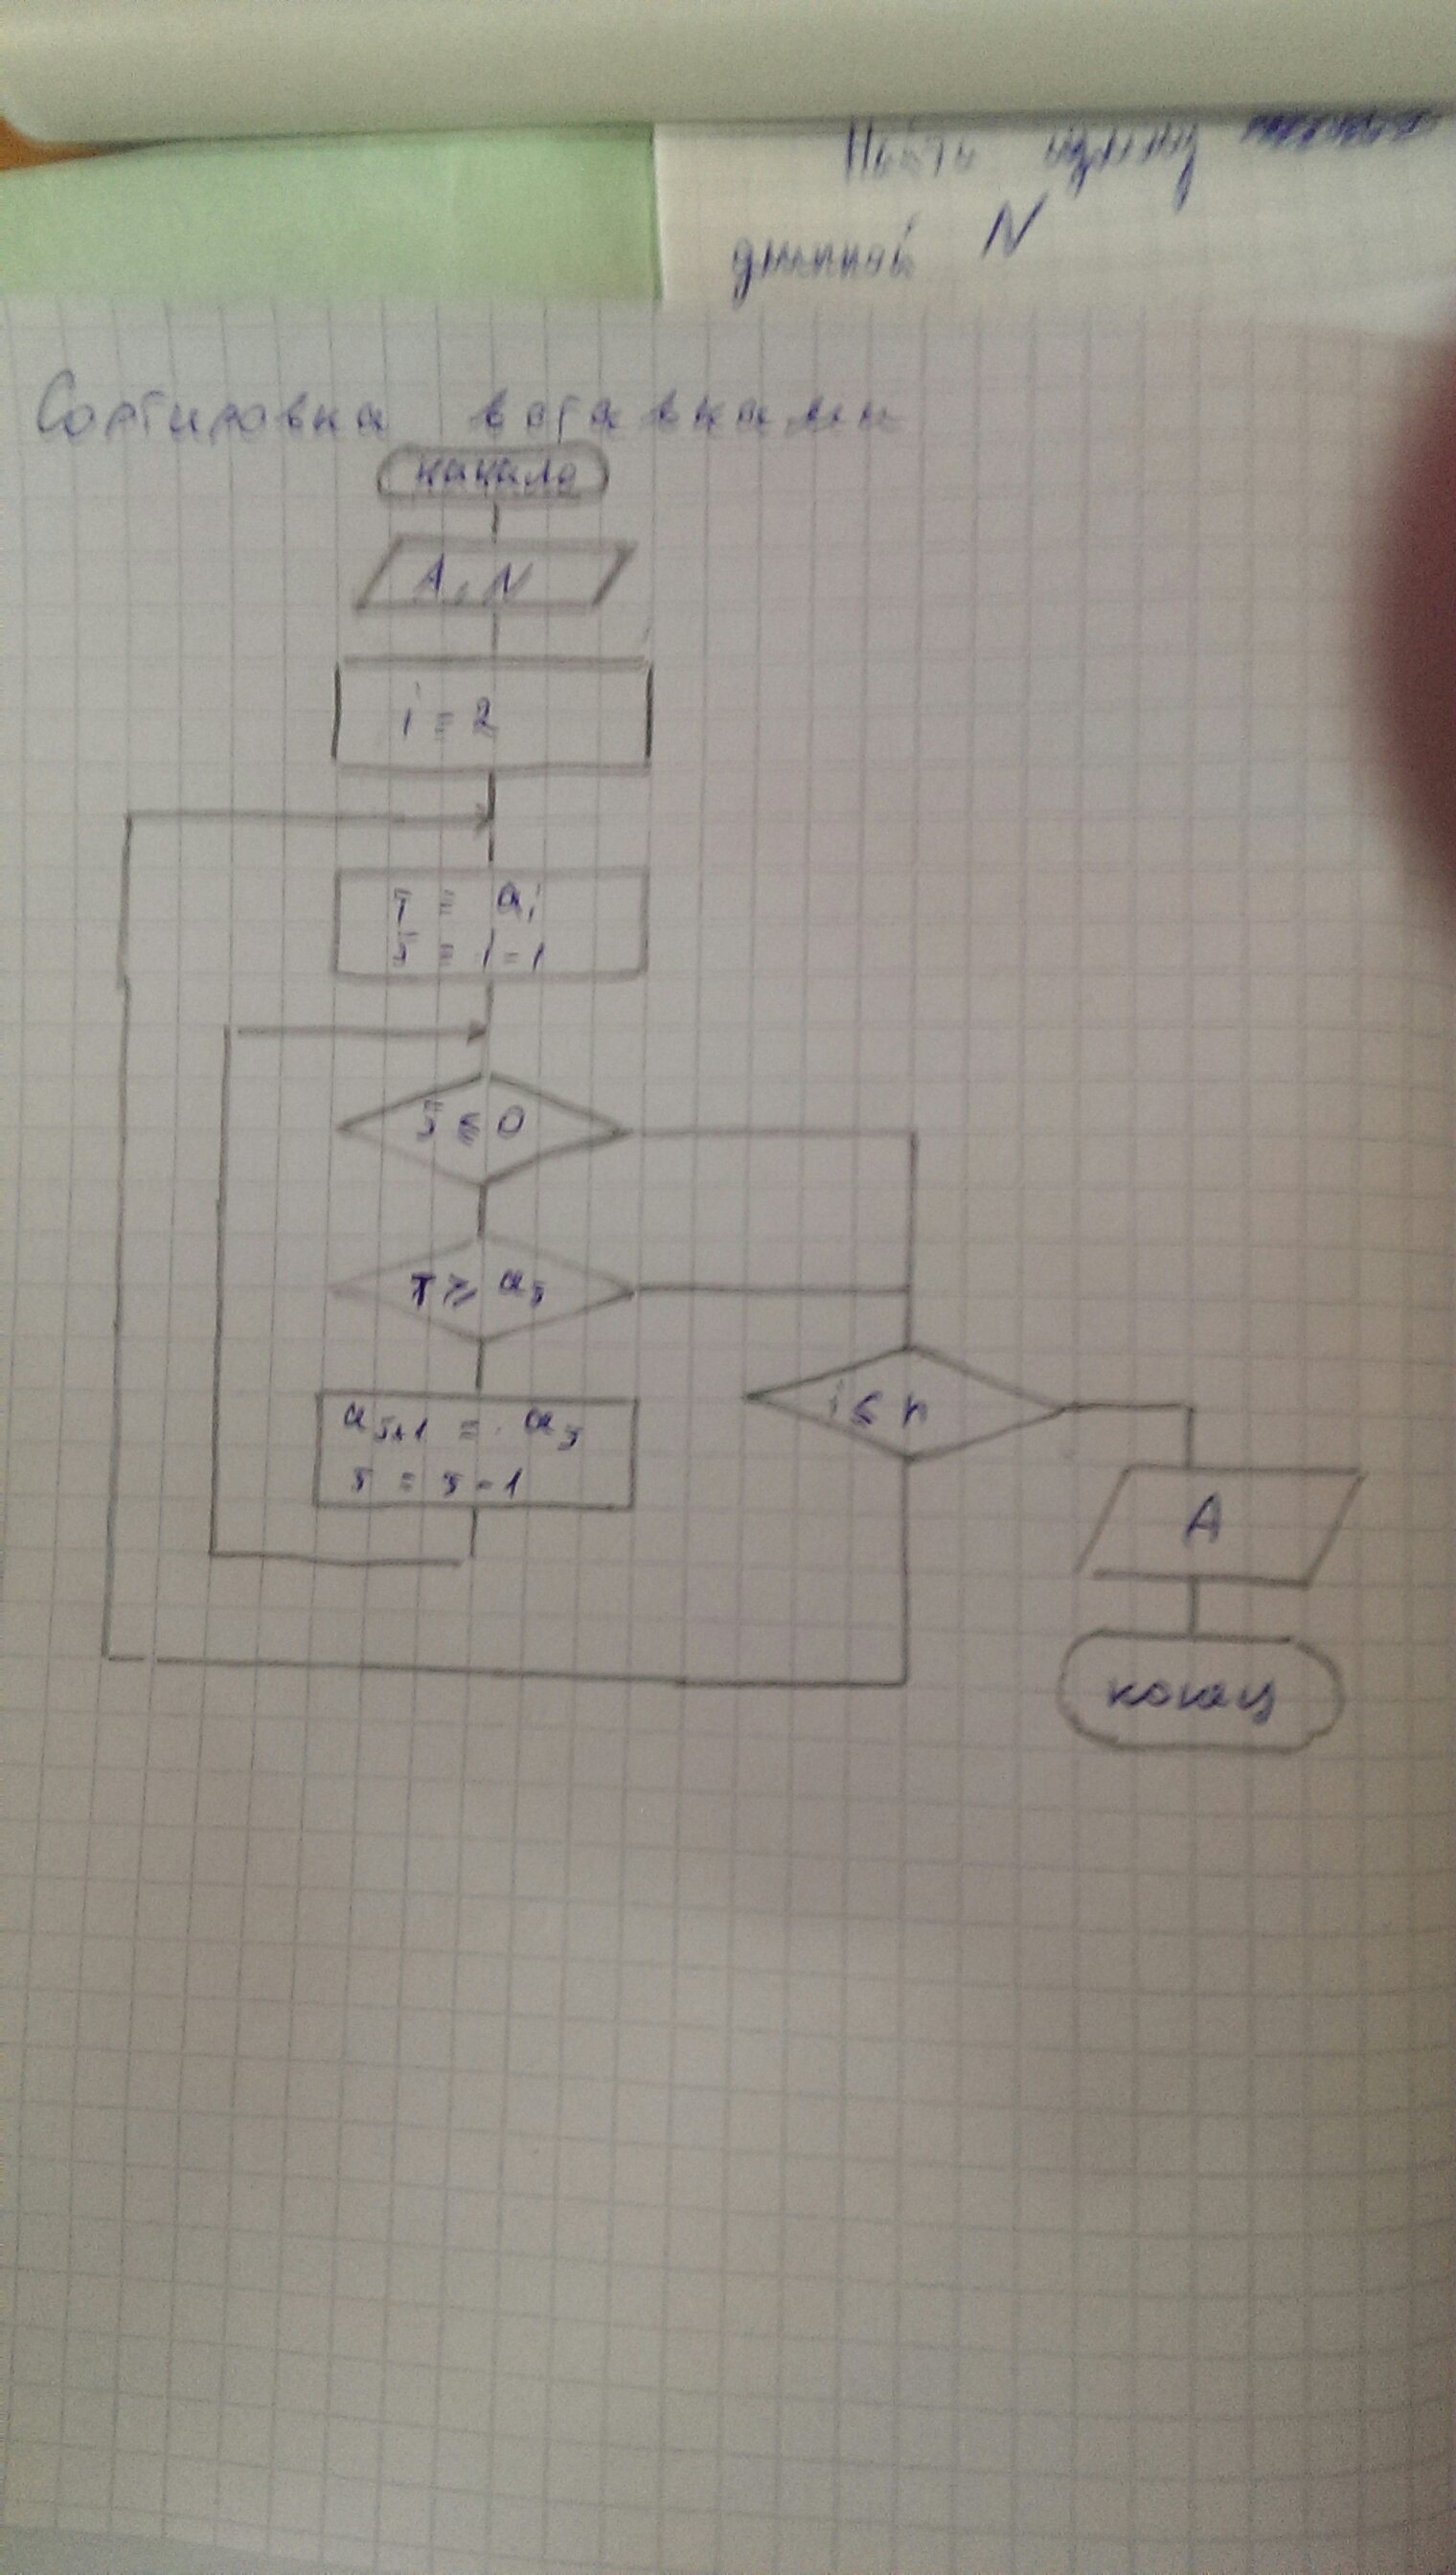 Найти
длинной N
Сортировка вставками
начало
A, N
i = 2
T = ai
J = i - 1
J ≤ 0
T ≥ aJ
aJ+1 = aJ
J = J - 1
i ≤ n
A
конец